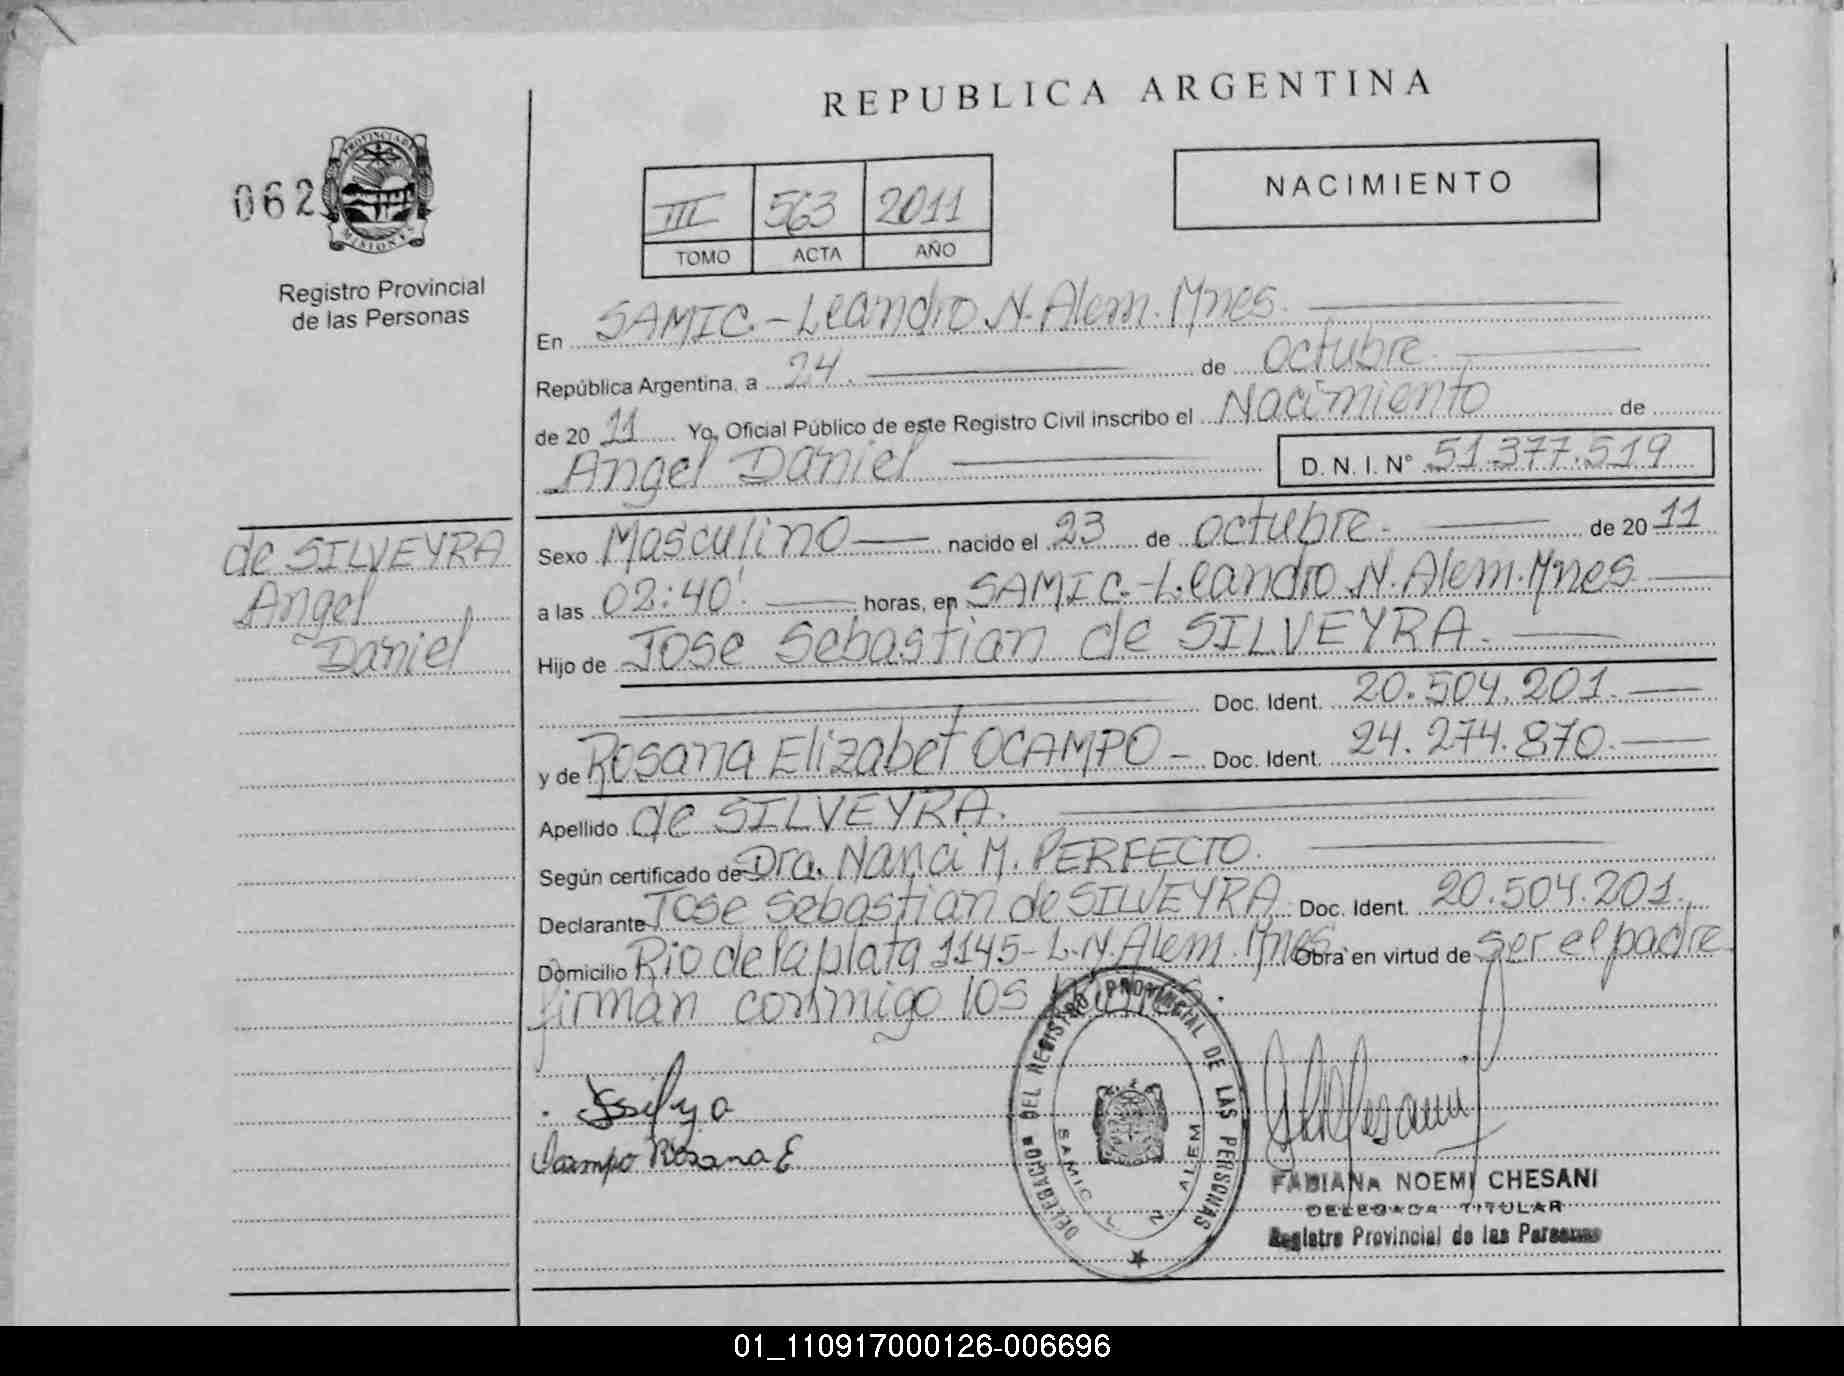 REPUBLICA ARGENTINA
062
PROVINCIA DE
MISIONES
Registro Provincial
de las Personas
III 563 2011
TOMO ACTA AÑO
NACIMIENTO
En SAMIC.-Leandro N. Alem. Mnes.
República Argentina, a 24. de octubre.
de 20 11 Yo, Oficial Público de este Registro Civil inscribo el Nacimiento de
Angel Daniel D. N. I. N° 51.377.519
de SILVEYRA
Angel
Daniel
Sexo Masculino nacido el 23 de octubre. de 20 11
a las 02:40' horas, en SAMIC.-Leandro N. Alem. Mnes
Hijo de Jose Sebastian de SILVEYRA.
Doc. Ident. 20.504.201.
y de Rosana Elizabet OCAMPO - Doc. Ident. 24.274.870.
Apellido de SILVEYRA.
Según certificado de Dra. Nanci M. PERFECTO.
Declarante Jose Sebastian de SILVEYRA Doc. Ident. 20.504.201.
Domicilio Rio de la plata 1145- L.N. Alem. Mnes. Obra en virtud de ser el padre
firman conmigo los
DELEGACION DEL REGISTRO PROVINCIAL DE LAS PERSONAS
SAMIC L N ALEM
Ocampo Rosana E
FABIANA NOEMI CHESANI
DELEGADA TITULAR
Registro Provincial de las Personas
01_110917000126-006696